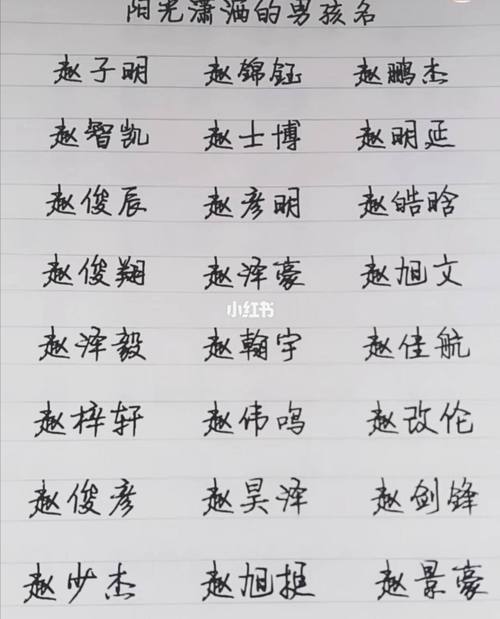 阳光潇洒的男孩名
赵子明 赵锦钰 赵鹏杰
赵智凯 赵士博 赵明延
赵俊辰 赵彦明 赵皓晗
赵俊翔 赵泽豪 赵旭文
小红书
赵泽毅 赵翰宇 赵佳航
赵梓轩 赵伟鸣 赵改伦
赵俊彦 赵昊泽 赵剑锋
赵少杰 赵旭 赵景豪